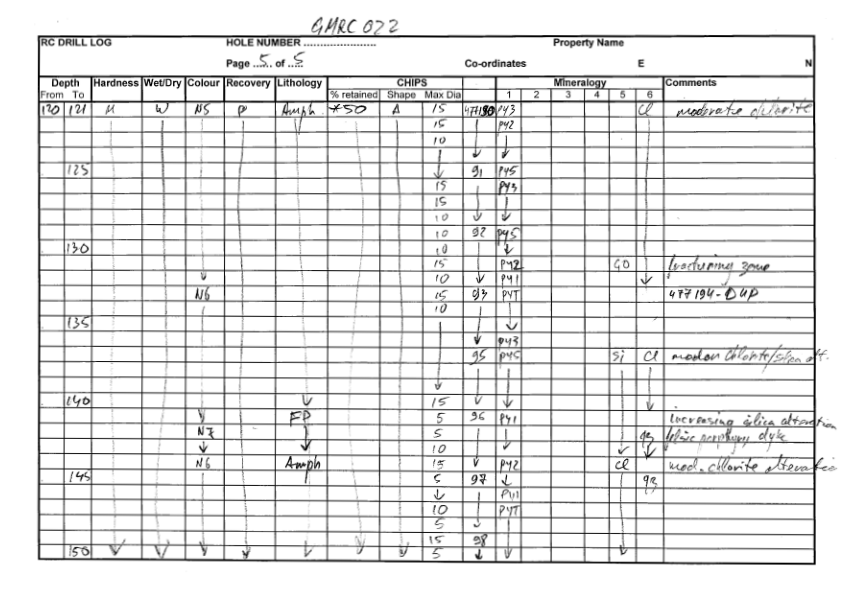 GMRC 022
RC DRILL LOG HOLE NUMBER ........................ Property Name
Page ..5.. of ..5.. Co-ordinates E N
Depth Hardness Wet/Dry Colour Recovery Lithology CHIPS Mineralogy Comments
From To % retained Shape Max Dia 1 2 3 4 5 6
120 121 M W N5 P Amph *50 A 15 477190 PY3 Cl moderate chlorite
15 PY2
10
125 91 PY5
15 PY3
15
10
10 92 PY5
130 10
15 PY2 GO fracturing zone
10 PY1
N6 15 93 PYT 477194-DUP
10
135
PY3
95 PY5 Si Cl chlorite/silica alt.
140 15
FP 5 96 PY1 increasing silica alteration
N7 5 qz felsic porphyry dyke
10
N6 Amph 15 PY2 Cl mod. chlorite alteratio
145 5 97 qz
10 PYT
5
15 98
150 5